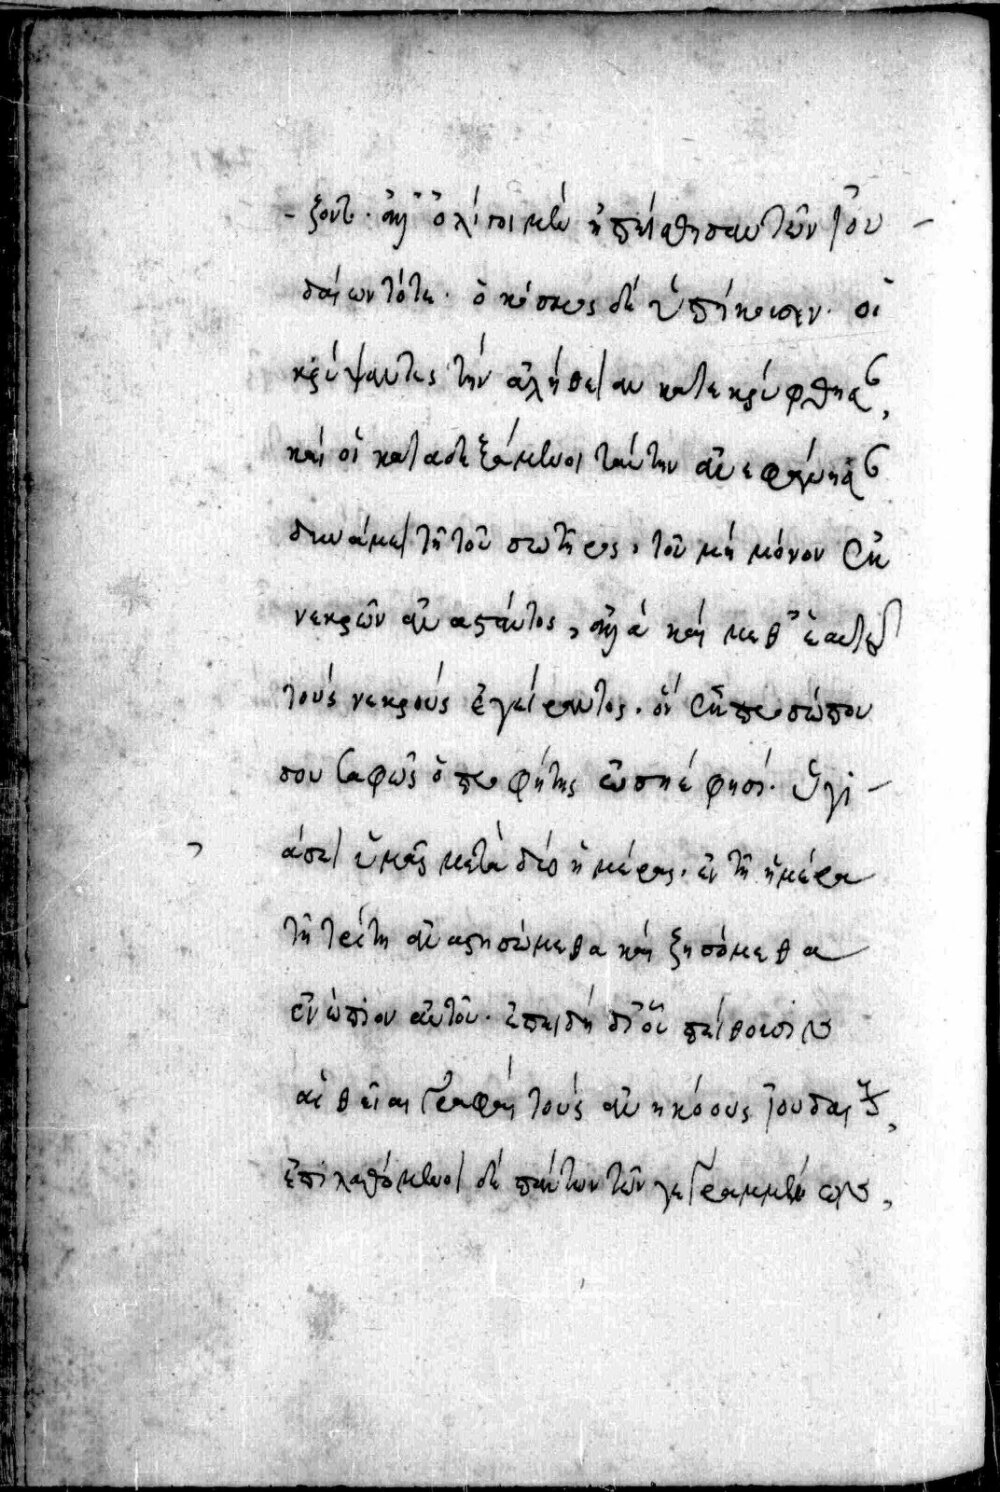 ξοντ. ἀλλ' ὀλίγοι μὲν ἠπείθησαν τῶν Ἰου
δαίων τότε. ὁ κόσμος δὲ ὑπήκουσεν. οἱ
κρύψαντες τὴν ἀλήθειαν κατεκρύφθησαν,
καὶ οἱ καταδεξάμενοι ταύτην ἀνεφάνησαν
δυνάμει τῆ τοῦ σωτῆρος, τοῦ μὴ μόνον ἐκ
νεκρῶν ἀναστάντος, ἀλλὰ καὶ μεθ' ἑαυτοῦ
τοὺς νεκροὺς ἐγείραντος. ὃν ἐκ προσώπου
που σαφῶς ὁ προφήτης ὠσηέ φησί. Ὑγι
άσει ὑμᾶς μετὰ δύο ἡμέρας. ἐν τῆ ἡμέρα
τῆ τρίτη ἀναστησώμεθα καὶ ζησόμεθα
ἐνώπιον αὐτοῦ. ἐπειδὴ δι' οὗ πείθουσιν
αἱ θεῖαι γραφαὶ τοὺς ἀνηκόους Ἰουδαίους,
ἐπιλαθόμενοι δὲ πάντων τῶν γεγραμμένων,